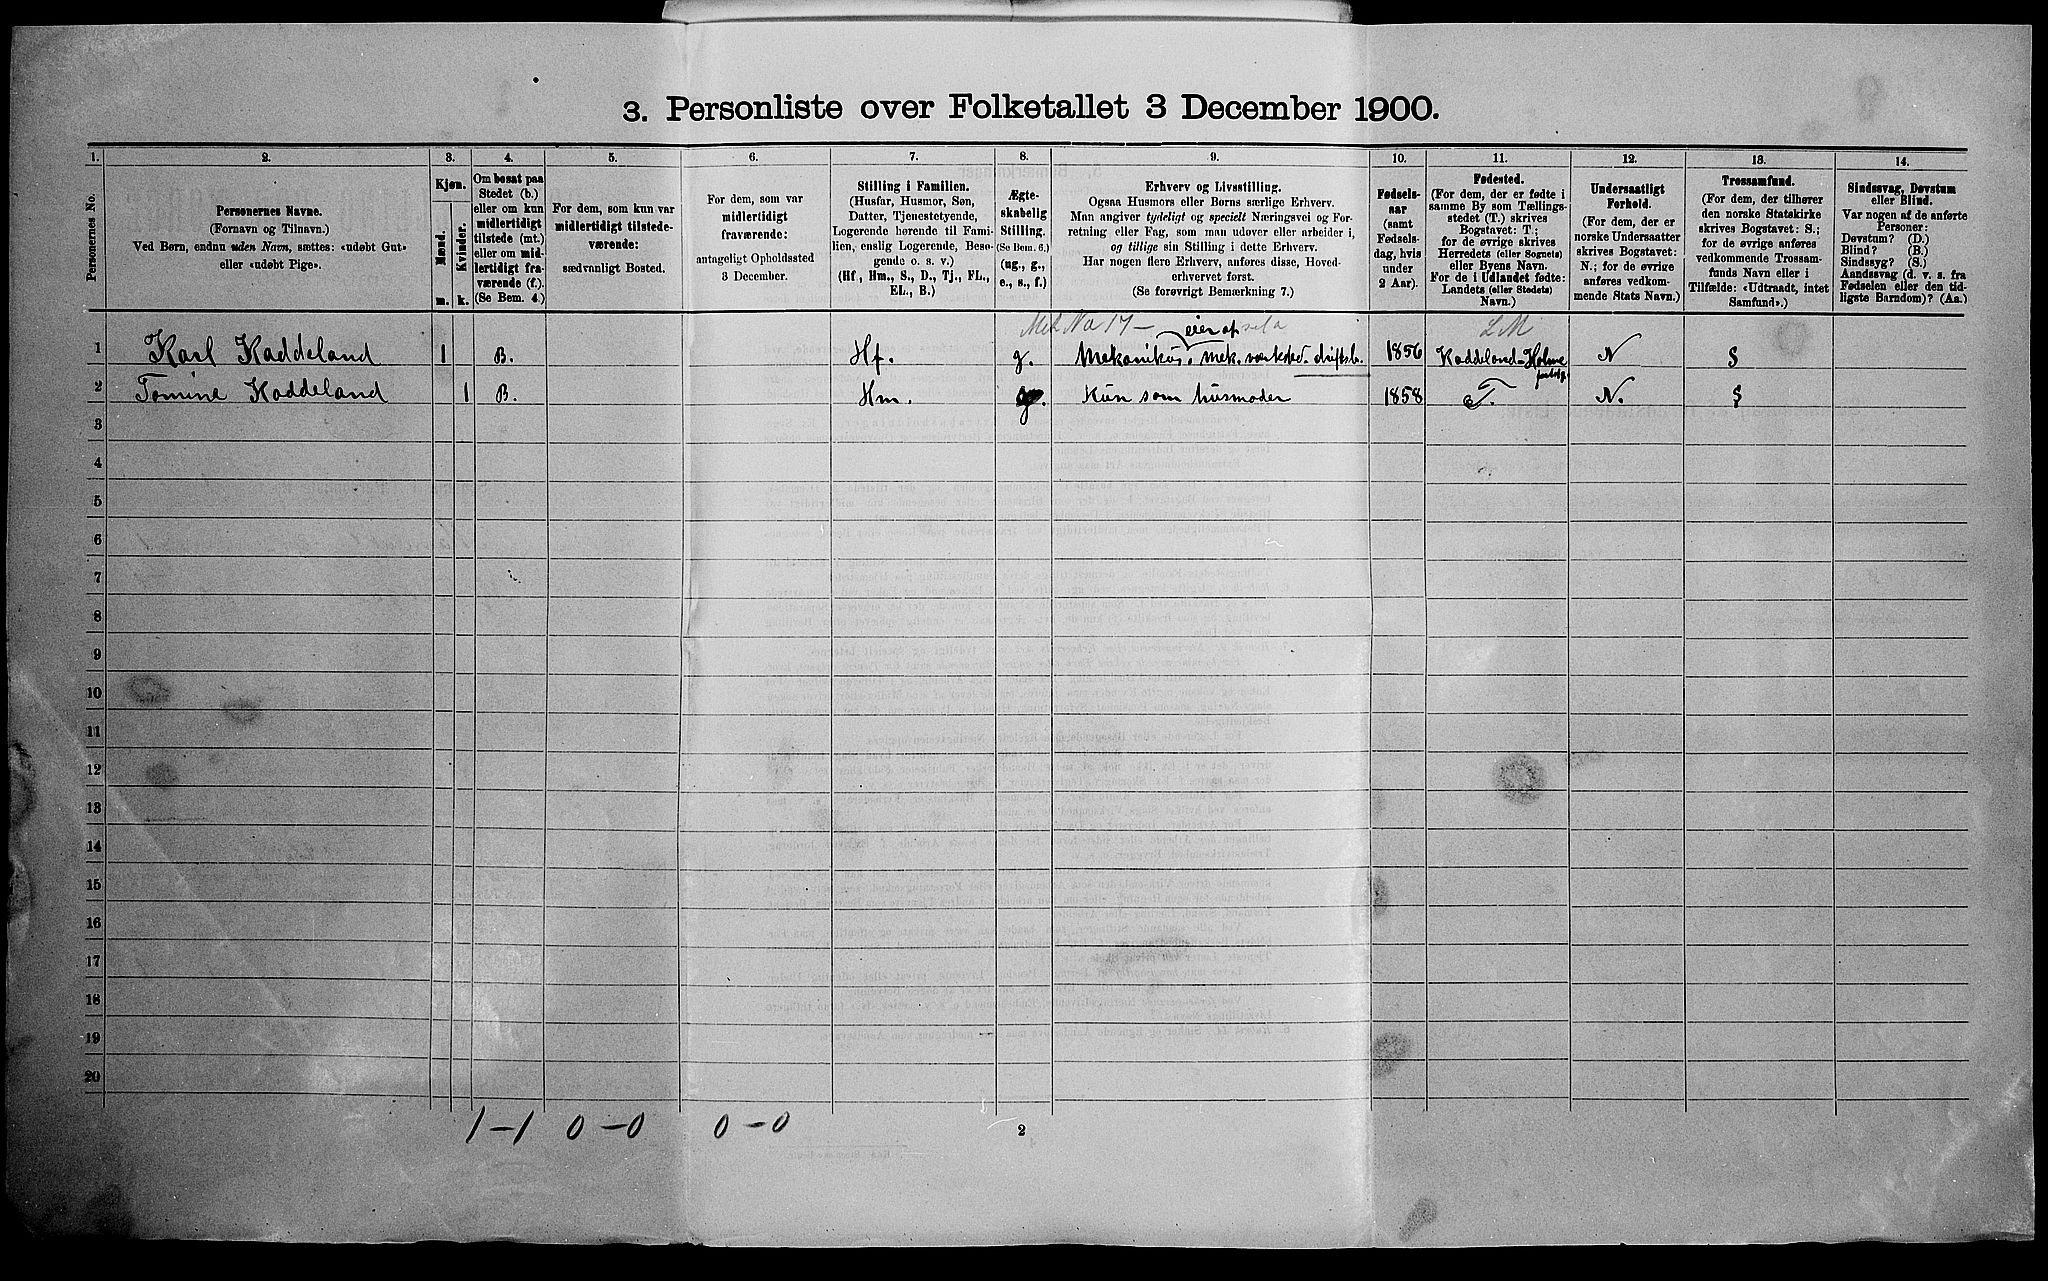 3. Personliste over Folketallet 3 December 1900.
1. 2. 3. 4. 5. 6. 7. 8. 9. 10. 11. 12. 13. 14.
Personernes No.
Personernes Navne.
(Fornavn og Tilnavn.)
Ved Børn, endnu uden Navn, sættes: «udøbt Gut»
eller «udøbt Pige».
Kjøn.
Mænd.
Kvinder.
m. k.
Om bosat paa
Stedet (b.)
eller om kun
midlertidigt
tilstede (mt.)
eller om mid-
lertidigt fra-
værende (f.).
(Se Bem. 4.)
For dem, som kun var
midlertidigt tilstede-
værende:
sædvanligt Bosted.
For dem, som var
midlertidigt
fraværende:
antageligt Opholdssted
3 December.
Stilling i Familien.
(Husfar, Husmor, Søn,
Datter, Tjenestetyende,
Logerende hørende til Fami-
lien, enslig Logerende, Besø-
gende o. s. v.)
(Hf, Hm., S., D., Tj., FL.,
EL., B.)
Ægte-
skabelig
Stilling.
(Se Bem. 6.)
(ug., g.,
e., s., f.)
Erhverv og Livsstilling.
Ogsaa Husmors eller Børns særlige Erhverv.
Man angiver tydeligt og specielt Næringsvei og For-
retning eller Fag, som man udøver eller arbeider i,
og tillige sin Stilling i dette Erhverv.
Har nogen flere Erhverv, anføres disse, Hoved-
erhvervet først.
(Se forøvrigt Bemærkning 7.)
Fødsels-
aar
(samt
Fødsels-
dag, hvis
under
2 Aar).
Fødested.
(For dem, der er fødte i
samme By som Tællings-
stedet (T.) skrives
Bogstavet: T.;
for de øvrige skrives
Herredets (eller Sognets)
eller Byens Navn.
For de i Udlandet fødte:
Landets (eller Stedets)
Navn.)
Undersaatligt
Forhold.
(For dem, der er
norske Undersaatter
skrives Bogstavet:
N.; for de øvrige
anføres vedkom-
mende Stats Navn.)
Trossamfund.
(For dem, der tilhører
den norske Statskirke
skrives Bogstavet: S.;
for de øvrige anføres
vedkommende Trossam-
funds Navn eller i
Tilfælde: «Udtraadt, intet
Samfund».)
Sindssvag, Døvstum
eller Blind.
Var nogen af de anførte
Personer:
Døvstum? (D.)
Blind? (B.)
Sindssyg? (S.)
Aandssvag (d. v. s. fra
Fødselen eller den tid-
ligste Barndom)? (Aa.)
Mek No 17 — eier af LM
1 Karl Kaddeland 1 B. Hf. g. Mekanikus, mek. værksted. driftsb. 1856 Kaddeland-Holme N S
2 Tomine Kaddeland 1 B. Hm. g. Kun som husmoder 1858 T. N. S
3
4
5
6
7
8
9
10
11
12
13
14
15
16
17
18
19
20
1–1 0–0 0–0
2